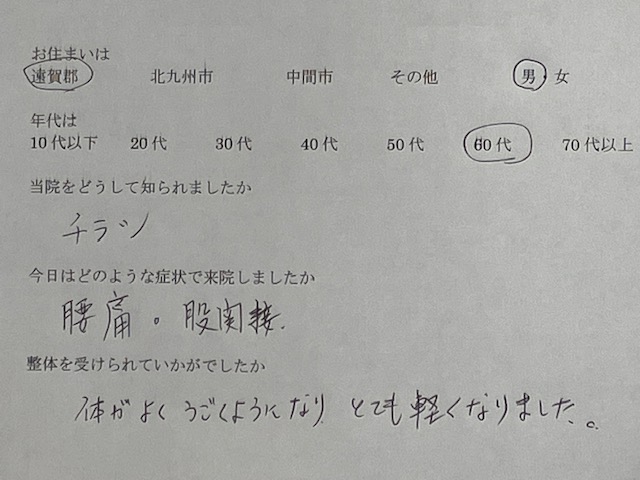 お住まいは
遠賀郡 北九州市 中間市 その他 男・女
年代は
10代以下 20代 30代 40代 50代 60代 70代以上
当院をどうして知られましたか
チラシ
今日はどのような症状で来院しましたか
腰痛。股関接.
整体を受けられていかがでしたか
体がよくうごくようになり とても軽くなりました。